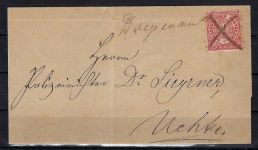 Diepenau
Herrn
Polizeirichter Dr Siegener,
Uchte